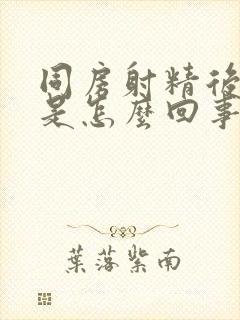 同房射精後
是怎麼回事
葉落紫南